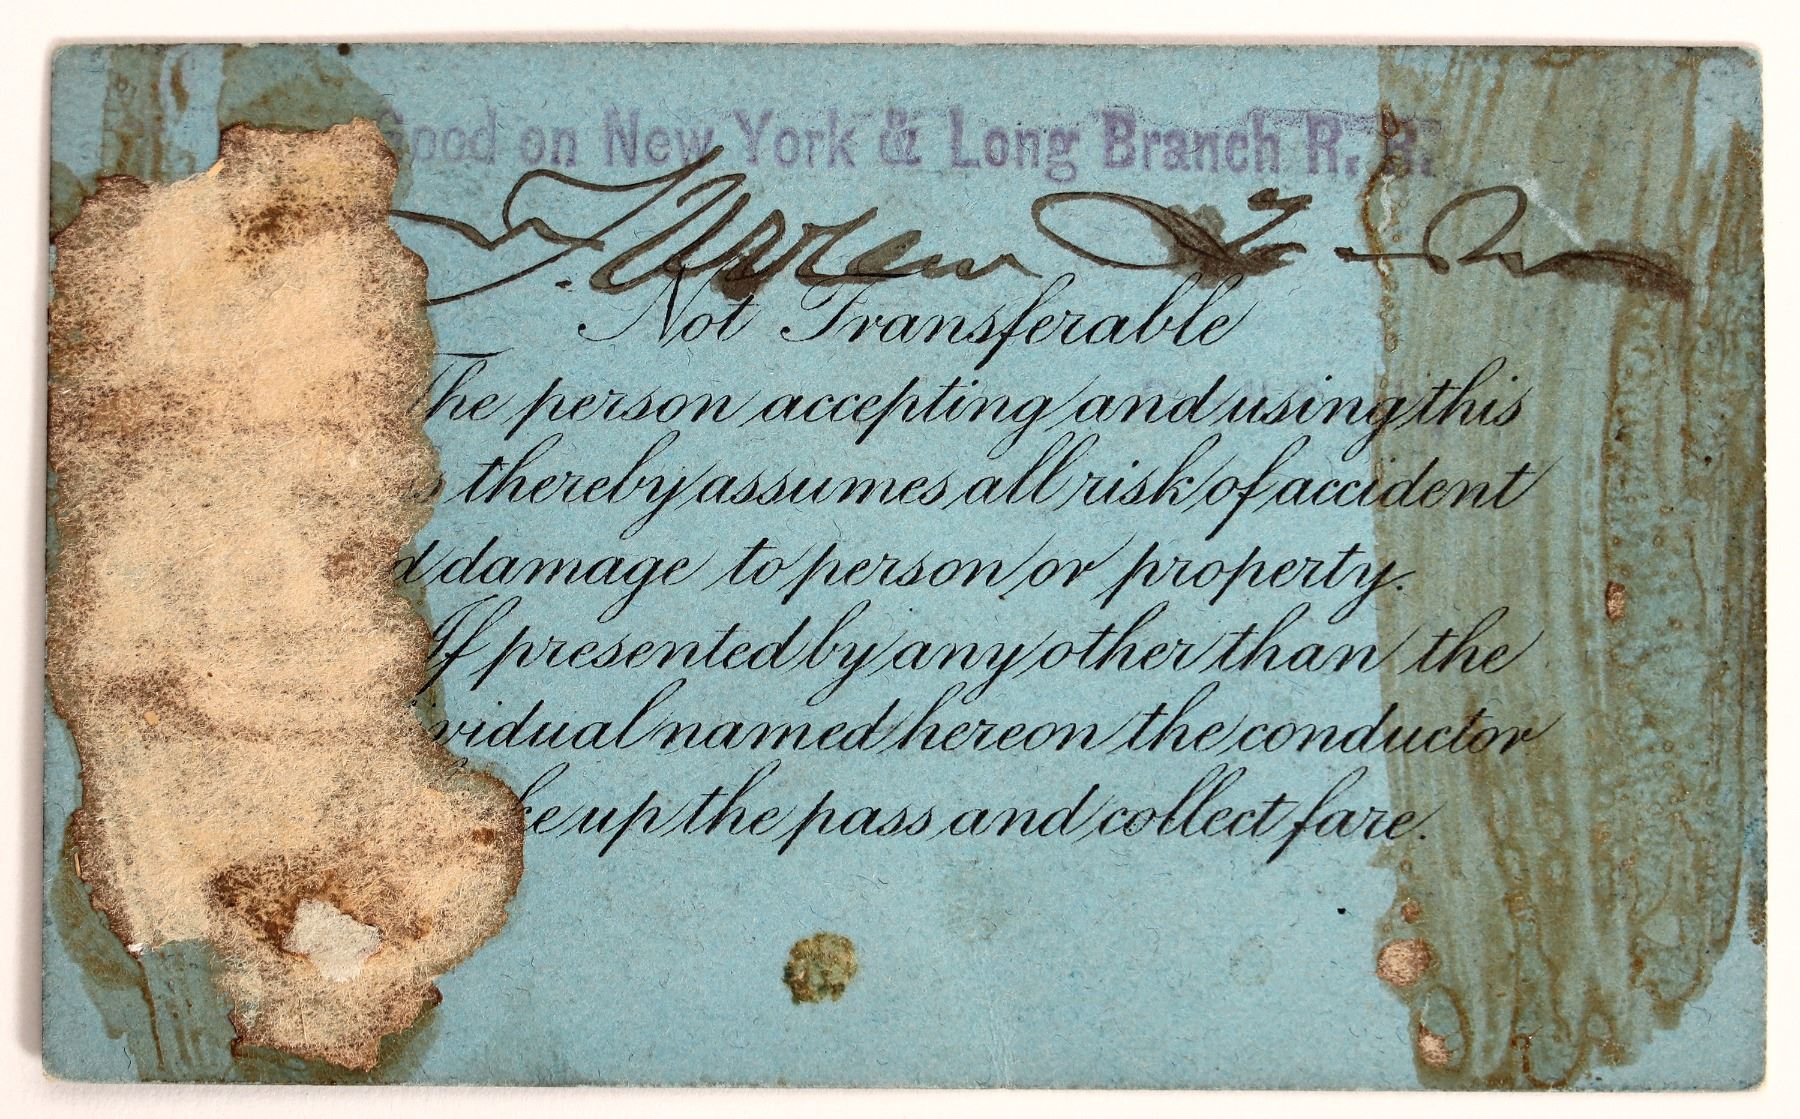 Good on New York & Long Branch R. R.
Not Transferable
The person accepting and using this
thereby assumes all risk of accident
d damage to person or property.
If presented by any other than the
vidual named hereon the conductor
ke up the pass and collect fare.